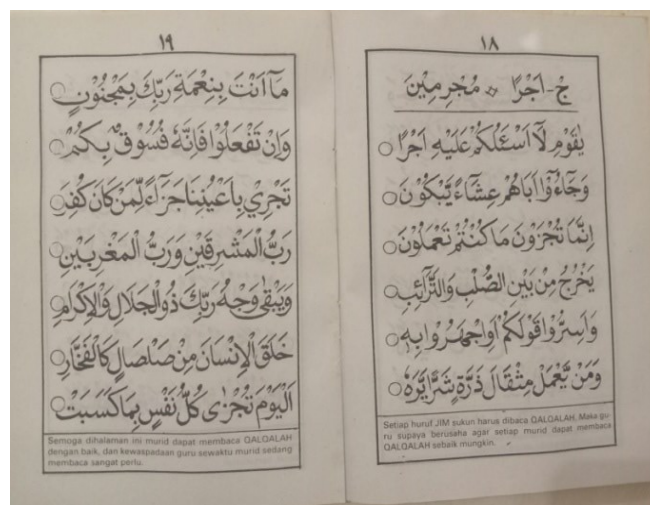 ١٨
ج - اَجْرًا ۞ مُجْرِمِيْنَ
يٰقَوْمِ لَآ اَسْـَٔلُكُمْ عَلَيْهِ اَجْرًا ○
وَجَآءُوْٓا اَبَاهُمْ عِشَآءً يَّبْكُوْنَ ○
اِنَّمَا تُجْزَوْنَ مَا كُنْتُمْ تَعْمَلُوْنَ ○
يَخْرُجُ مِنْ بَيْنِ الصُّلْبِ وَالتَّرَآئِبِ ○
وَاَسِرُّوْا قَوْلَكُمْ اَوِاجْهَرُوْا بِهٖ ○
وَمَنْ يَّعْمَلْ مِثْقَالَ ذَرَّةٍ شَرًّا يَّرَهٗ ○
Setiap huruf JIM sukun harus dibaca QALQALAH, Maka gu-
ru supaya berusaha agar setiap murid dapat membaca
QALQALAH sebaik mungkin.
١٩
مَآ اَنْتَ بِنِعْمَةِ رَبِّكَ بِمَجْنُوْنٍ ○
وَاِنْ تَفْعَلُوْا فَاِنَّهٗ فُسُوْقٌۢ بِكُمْ ○
تَجْرِيْ بِاَعْيُنِنَا جَزَآءً لِّمَنْ كَانَ كُفِرَ ○
رَبُّ الْمَشْرِقَيْنِ وَرَبُّ الْمَغْرِبَيْنِ ○
وَيَبْقٰى وَجْهُ رَبِّكَ ذُو الْجَلَالِ وَالْاِكْرَامِ ○
خَلَقَ الْاِنْسَانَ مِنْ صَلْصَالٍ كَالْفَخَّارِ ○
اَلْيَوْمَ تُجْزٰى كُلُّ نَفْسٍ بِمَا كَسَبَتْ ○
Semoga dihalaman ini murid dapat membaca QALQALAH
dengan baik, dan kewaspadaan guru sewaktu murid sedang
membaca sangat perlu.